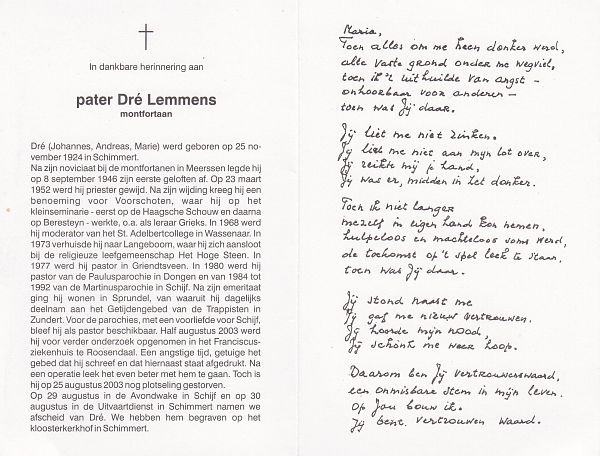 In dankbare herinnering aan
pater Dré Lemmens
montfortaan
Dré (Johannes, Andreas, Marie) werd geboren op 25 no-
vember 1924 in Schimmert.
Na zijn noviciaat bij de montfortanen in Meerssen legde hij
op 8 september 1946 zijn eerste geloften af. Op 23 maart
1952 werd hij priester gewijd. Na zijn wijding kreeg hij een
benoeming voor Voorschoten, waar hij op het
kleinseminarie - eerst op de Haagsche Schouw en daarna
op Beresteyn - werkte, o.a. als leraar Grieks. In 1968 werd
hij moderator van het St. Adelbertcollege in Wassenaar. In
1973 verhuisde hij naar Langeboom, waar hij zich aansloot
bij de religieuze leefgemeenschap Het Hoge Steen. In
1977 werd hij pastor in Griendtsveen. In 1980 werd hij
pastor van de Paulusparochie in Dongen en van 1984 tot
1992 van de Martinusparochie in Schijf. Na zijn emeritaat
ging hij wonen in Sprundel, van waaruit hij dagelijks
deelnam aan het Getijdengebed van de Trappisten in
Zundert. Voor de parochies, met een voorliefde voor Schijf,
bleef hij als pastor beschikbaar. Half augustus 2003 werd
hij voor verder onderzoek opgenomen in het Franciscus-
ziekenhuis te Roosendaal. Een angstige tijd, getuige het
gebed dat hij schreef en dat hiernaast staat afgedrukt. Na
een operatie leek het even beter met hem te gaan. Toch is
hij op 25 augustus 2003 nog plotseling gestorven.
Op 29 augustus in de Avondwake in Schijf en op 30
augustus in de Uitvaartdienst in Schimmert namen we
afscheid van Dré. We hebben hem begraven op het
kloosterkerkhof in Schimmert.
Maria,
Toen alles om me heen donker werd,
alle vaste grond onder me wegviel,
toen ik 't uithuilde van angst -
onhoorbaar voor anderen -
toen was Jij daar.
Jij liet me niet zinken.
Jij liet me niet aan mijn lot over,
Jij reikte mij je hand,
Jij was er, midden in het donker.
Toen ik niet langer
mezelf in eigen hand kon nemen,
hulpeloos en machteloos soms werd,
de toekomst op 't spel leek te staan,
toen was Jij daar.
Jij stond naast me
Jij gaf me nieuw vertrouwen.
Jij hoorde mijn nood,
Jij schonk me weer hoop.
Daarom ben Jij vertrouwenswaard,
een onmisbare stem in mijn leven.
Op Jou bouw ik.
Jij bent vertrouwen waard.